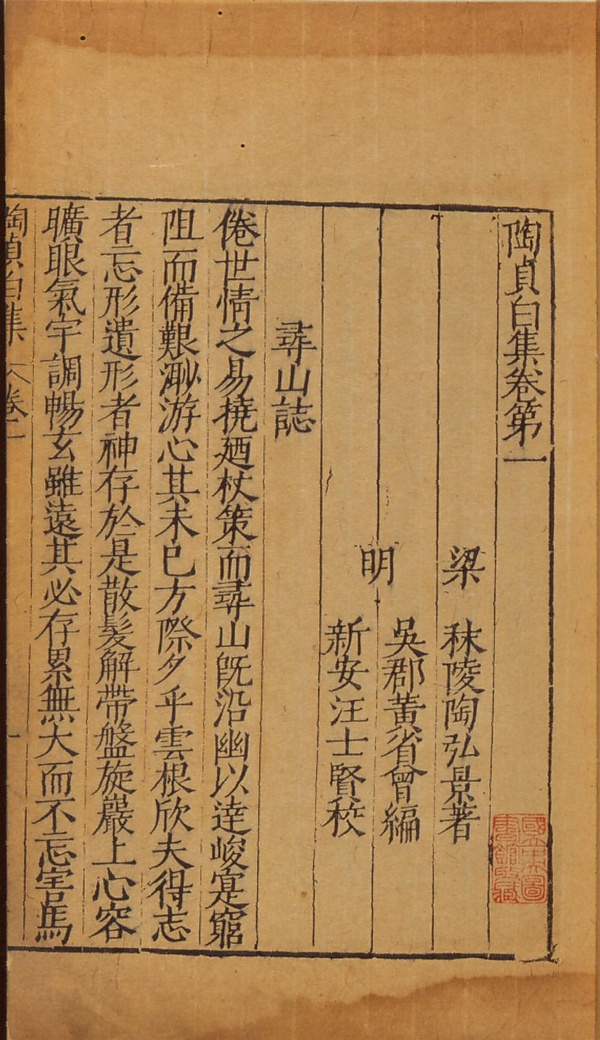 陶貞白集卷第一
梁 秣陵陶弘景著
明 吳郡黃省曾編
新安汪士賢校
尋山誌
倦世情之易撓廼杖策而尋山既沿幽以達峻寔窮
阻而備艱渺游心其未已方際夕乎雲根欣夫得志
者忘形遺形者神存於是散髮解帶盤旋巖上心容
曠眼氣宇調暢玄雖遠其必存累無大而不忘害馬
陶貞白集 卷一
一
國立中央圖書館收藏